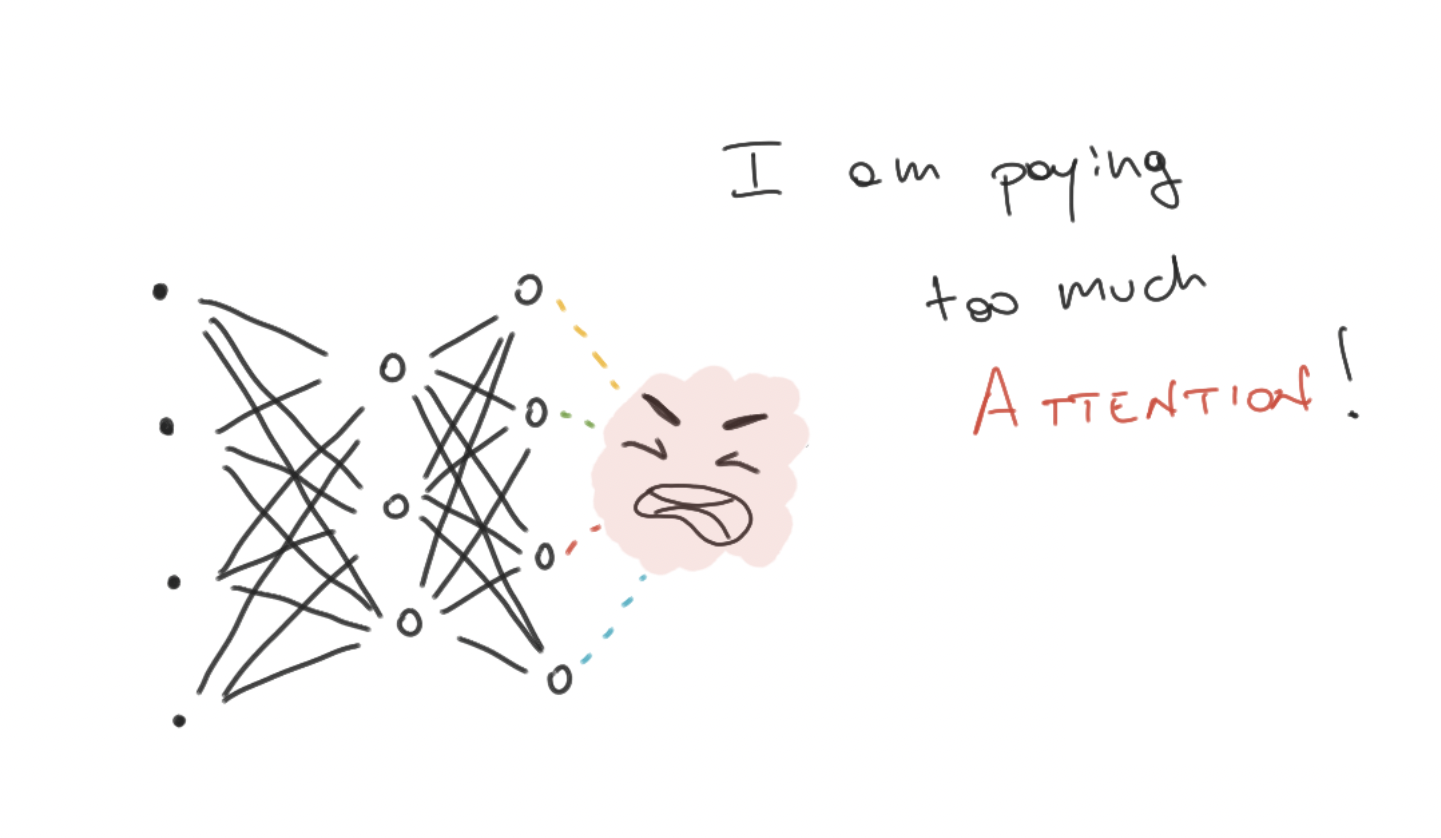 I am paying
too much
ATTENTION!